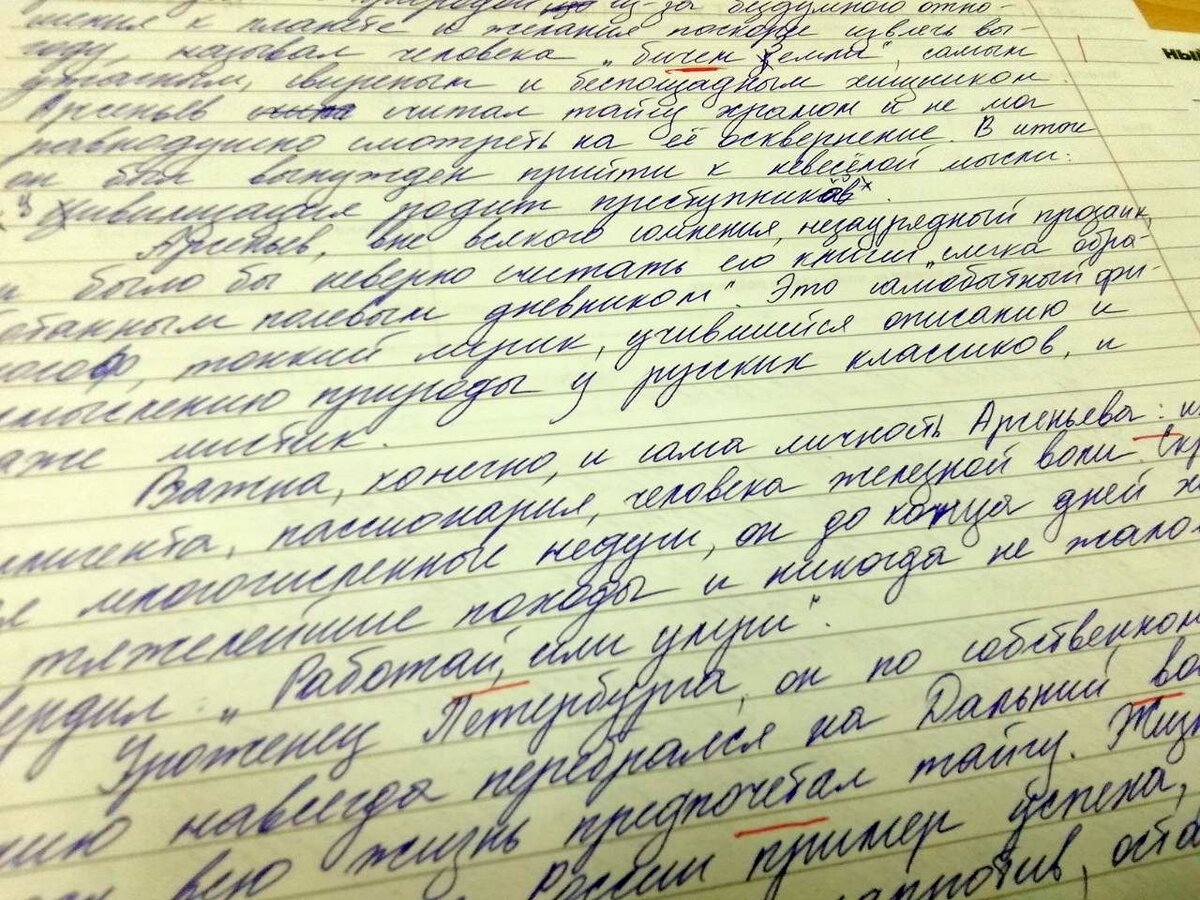 из-за бездумного отно-
шения к планете и желания поскорее извлечь вы-
году, называл человека „бичем Земли", самым
ужасным, свирепым и беспощадным хищником.
Арсеньев считал тайгу храмом и не мог
равнодушно смотреть на её осквернение. В итоге
он был вынужден прийти к невесёлой мысли:
цивилизация родит преступников.
Арсеньев, вне всякого сомнения, незаурядный прозаик,
было бы неверно считать его книги „слегка обра-
ботанным полевым дневником". Это самобытный фи-
лософ, тонкий лирик, учившийся описанию и
осмыслению природы у русских классиков, и
даже мистик.
Важна, конечно, и сама личность Арсеньева: ин
теллигента, пассионария, человека железной воли. Скр
многочисленные недуги, он до конца дней
тяжелейшие походы и никогда не жало
вердил: „Работай, или умри".
Уроженец Петербурга, он по собственном
нию навсегда перебрался на Дальний во
всю жизнь предпочетал тайгу. Жизн
России пример успеха,
напротив, оста
ны